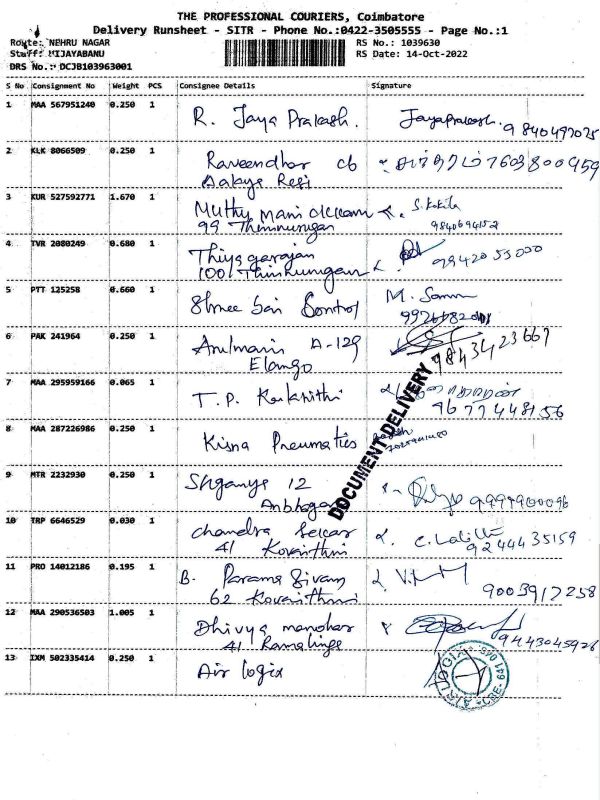 THE PROFESSIONAL COURIERS, Coimbatore
Delivery Runsheet - SITR - Phone No.:0422-3505555 - Page No.:1
Route: NEHRU NAGAR RS No.: 1039630
Staff: MIJAYABANU RS Date: 14-Oct-2022
DRS No.: DCJB103963001
S No Consignment No Weight PCS Consignee Details Signature
1 MAA 567951240 0.250 1 R. Jaya Prakash. Jayaprakash.
2 KLK 8066509 0.250 1 Raveendhar cb 7603800459
3 KUR 527592771 1.670 1 Muthu S. Kokila
99 9840694152
4 TVR 2080249 0.680 1 Thiyagarajan
1001
5 PTT 125258 0.660 1 Shree Sai
6 PAK 241964 0.250 1 Arulmani A-129 9843423667
Elango
7 MAA 295959166 0.065 1 T.P.
9677448156
8 MAA 287226986 0.250 1 Kisna Pneumatics
DOCUMENT DELIVERY
9 MTR 2232930 0.250 1 12
10 TRP 6646529 0.030 1 Chandra Sekar C. Lalitha
41 Kovaithiru 9244435159
11 PRO 14012186 0.195 1 B. Parama Sivam
62 Kovaithiru 9003917258
12 MAA 290536503 1.005 1 Dhivya manohar
41 Ramalinga 9443045926
13 IXM 502335414 0.250 1 Air logix
AIR LOGIX CBE- 641 045.